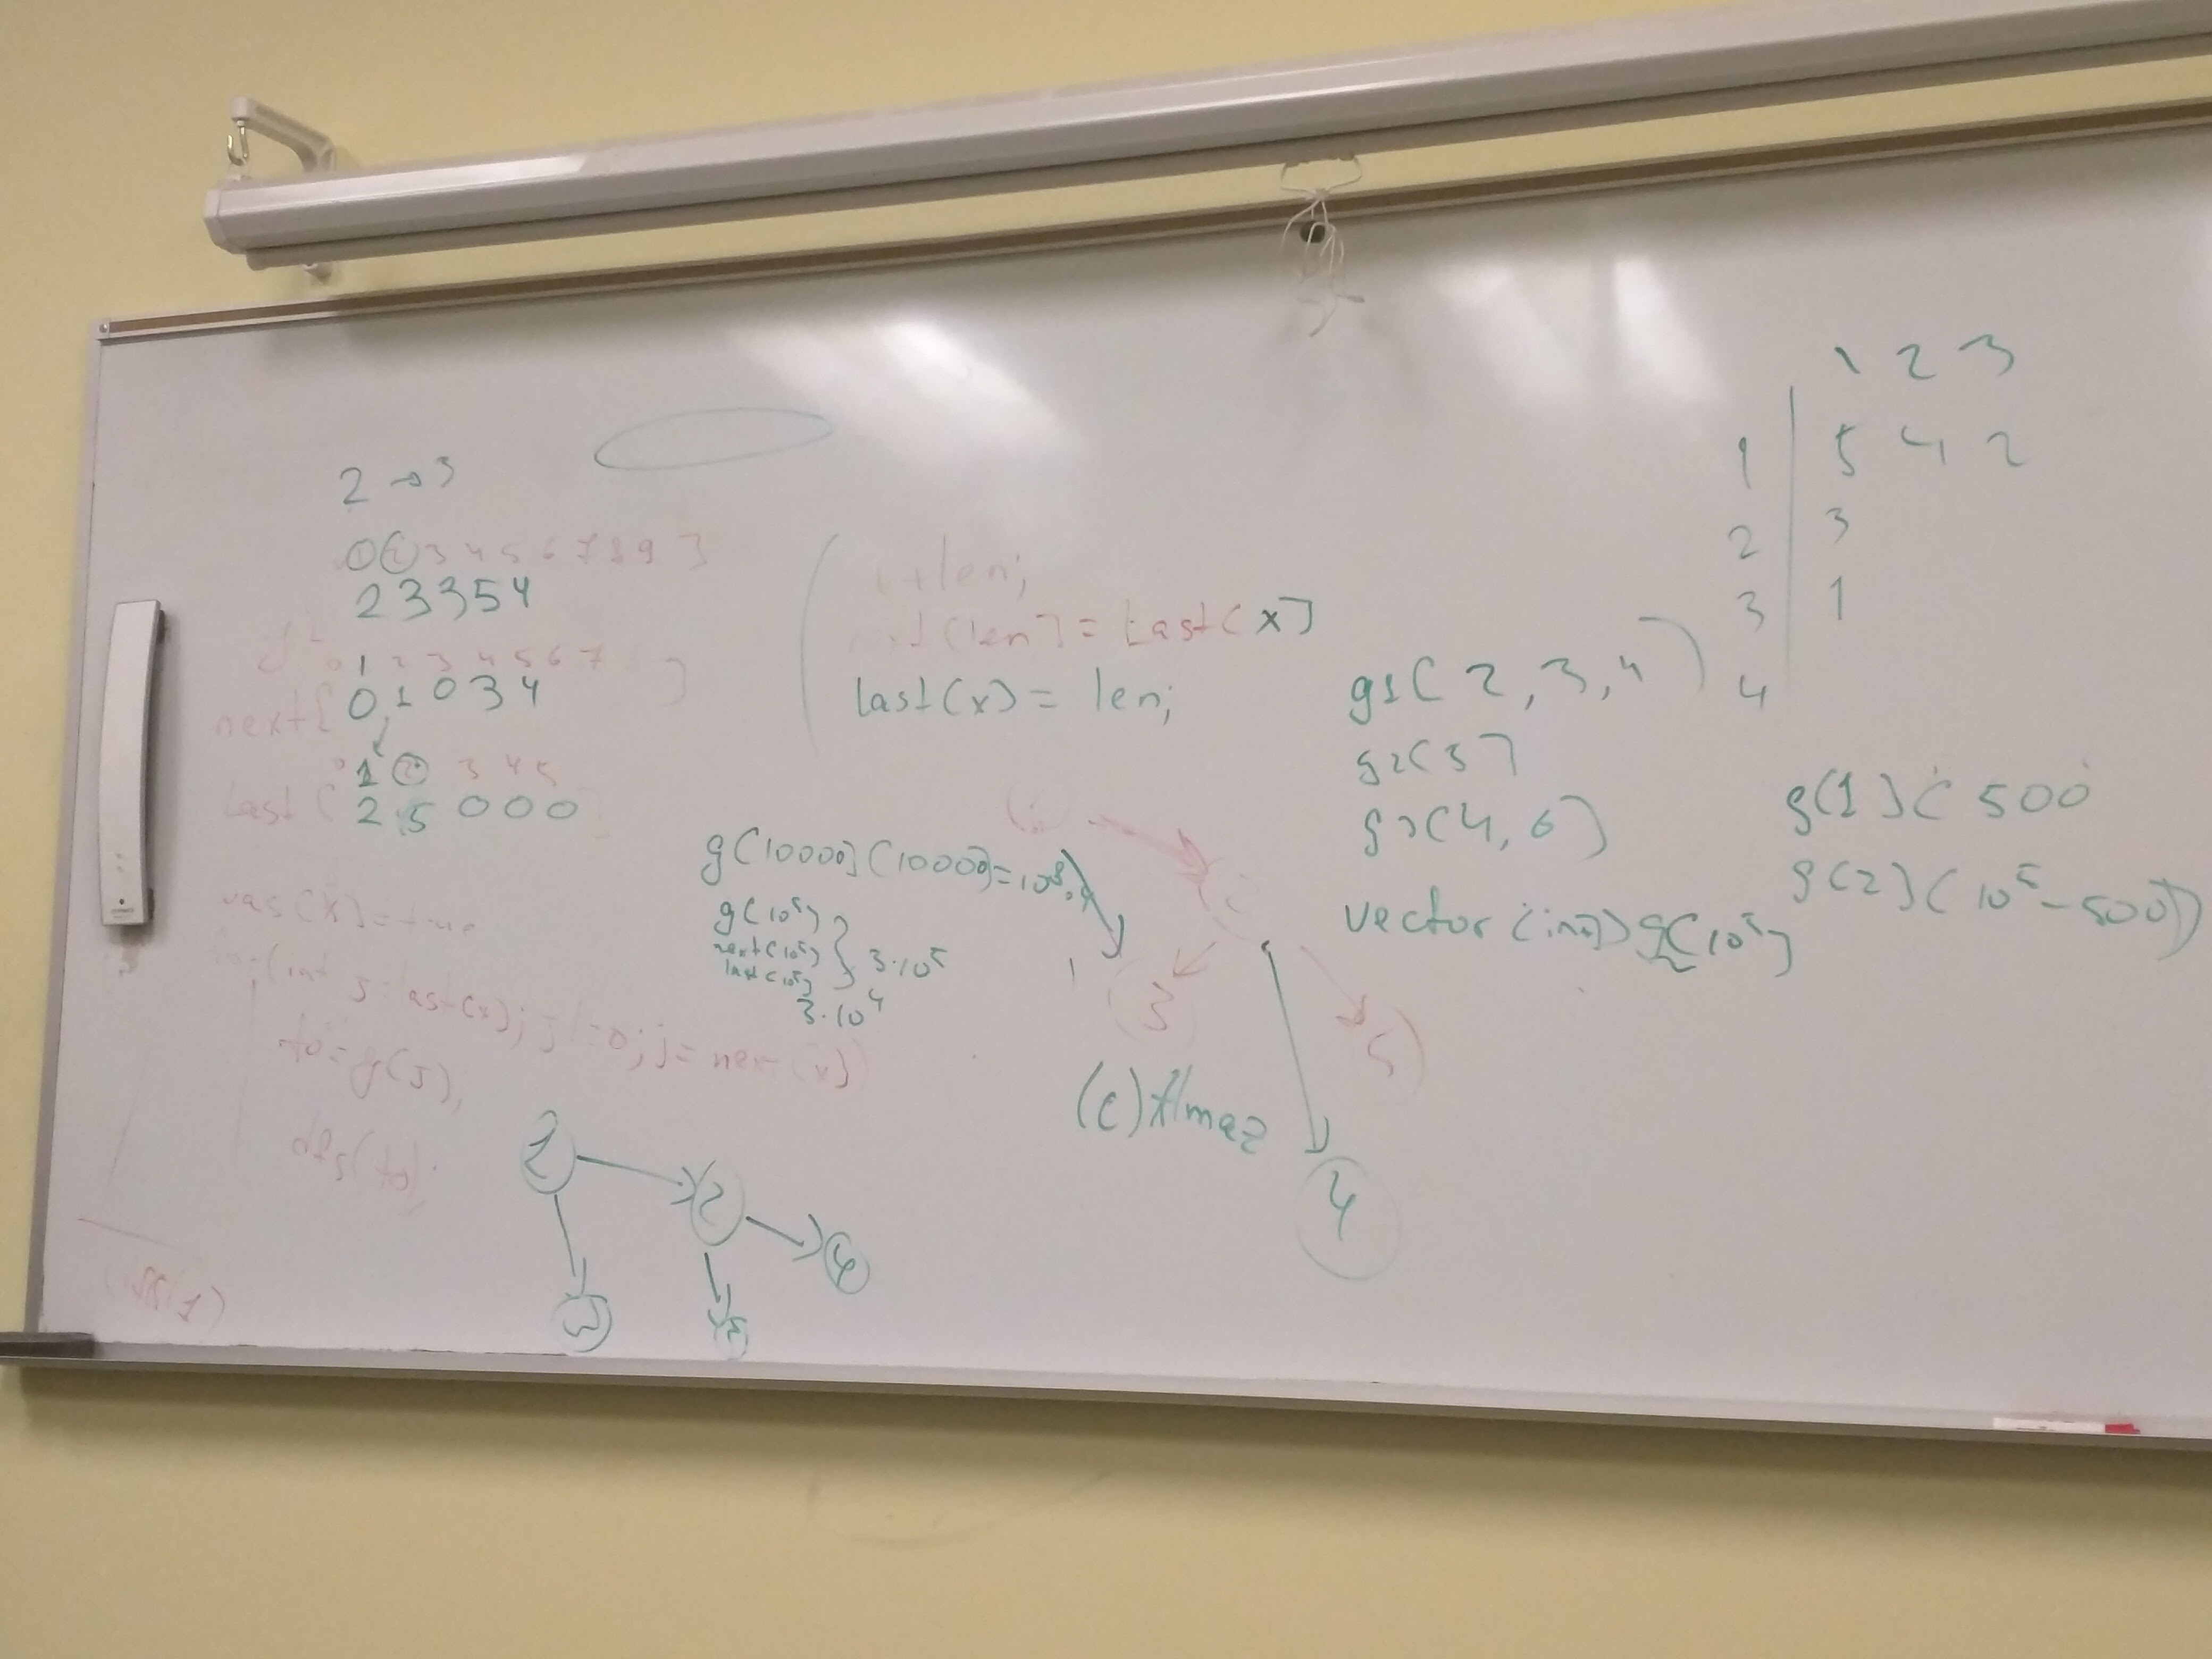 2 → 3
1 2 3 4 5 6 7 8 9 ]
2 3 3 5 4
0 1 2 3 4 5 6 7 ]
next [ 0 1 0 3 4
0 1 2 3 4 5
last [ 2 5 0 0 0 ]
vas[x] = true
for (int j = last[x]; j != 0; j = next[x]
to = g[j],
dfs(to);
++len;
next[len] = last[x]
last[x] = len;
g[10000][10000] = 10^8
g[10^5]
next[10^5]
last[10^5]
3·10^5
3·10^4
1
2
3
4
5
3
5
4
(c) Almaz
g1[2, 3, 4]
g2[3]
g3[4, 6]
vector<int> g[10^5]
g[1][500
g[2][10^5 - 500]
1 2 3
1 5 4 2
2 3
3 1
4